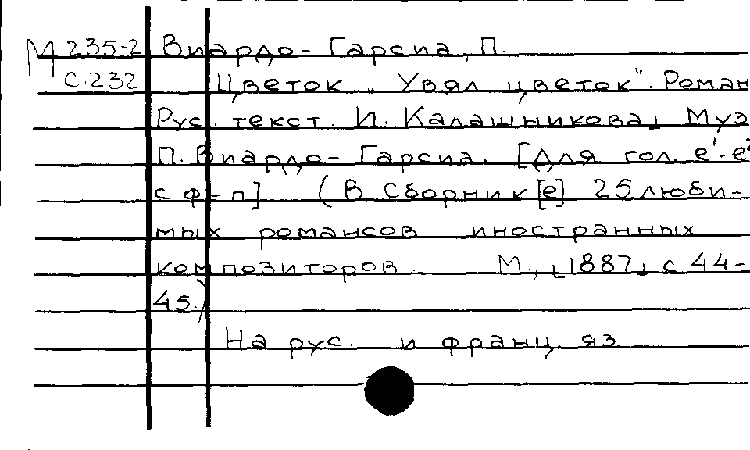 М 235-2 Виардо-Гарсиа, П.
с.232 Цветок „Увял цветок". Роман
Рус. текст. И. Калашникова, Муз
П. Виардо-Гарсиа. [Для гол. e'-e²
с ф-п] (В сборник[е] 25 люби-
мых романсов иностранных
композиторов. М., [1887] с 44-
45.)
На рус. и франц. яз